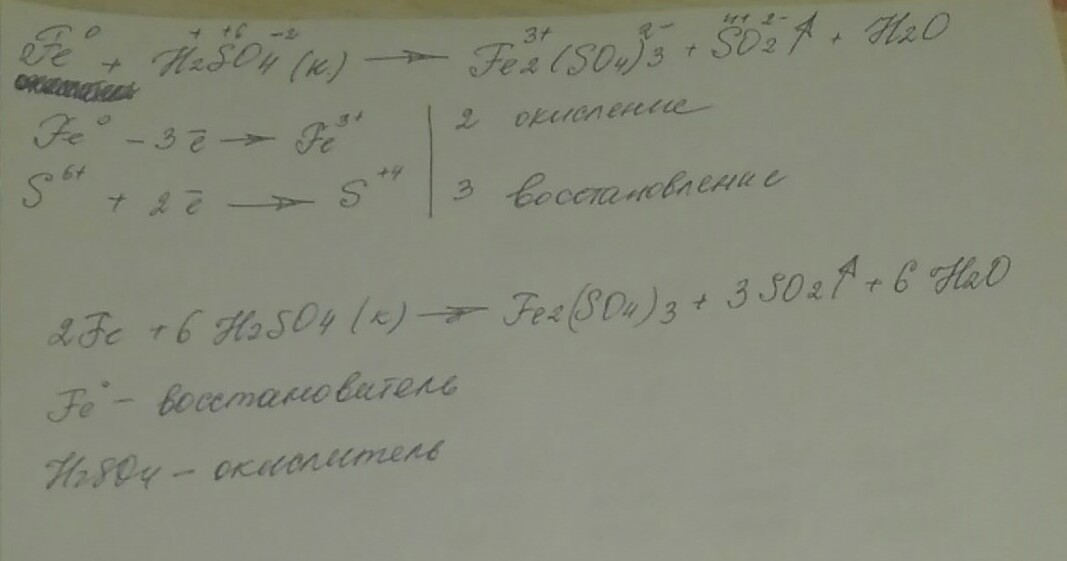 2Fe⁰ + H₂⁺S⁺⁶O₄⁻² (к.) → Fe₂³⁺(SO₄)₃²⁻ + S⁴⁺O₂²⁻↑ + H₂O
Fe⁰ - 3ē → Fe³⁺ | 2 окисление
S⁶⁺ + 2ē → S⁺⁴ | 3 восстановление
2Fe + 6 H₂SO₄ (к) → Fe₂(SO₄)₃ + 3 SO₂↑ + 6 H₂O
Fe⁰ - восстановитель
H₂SO₄ - окислитель